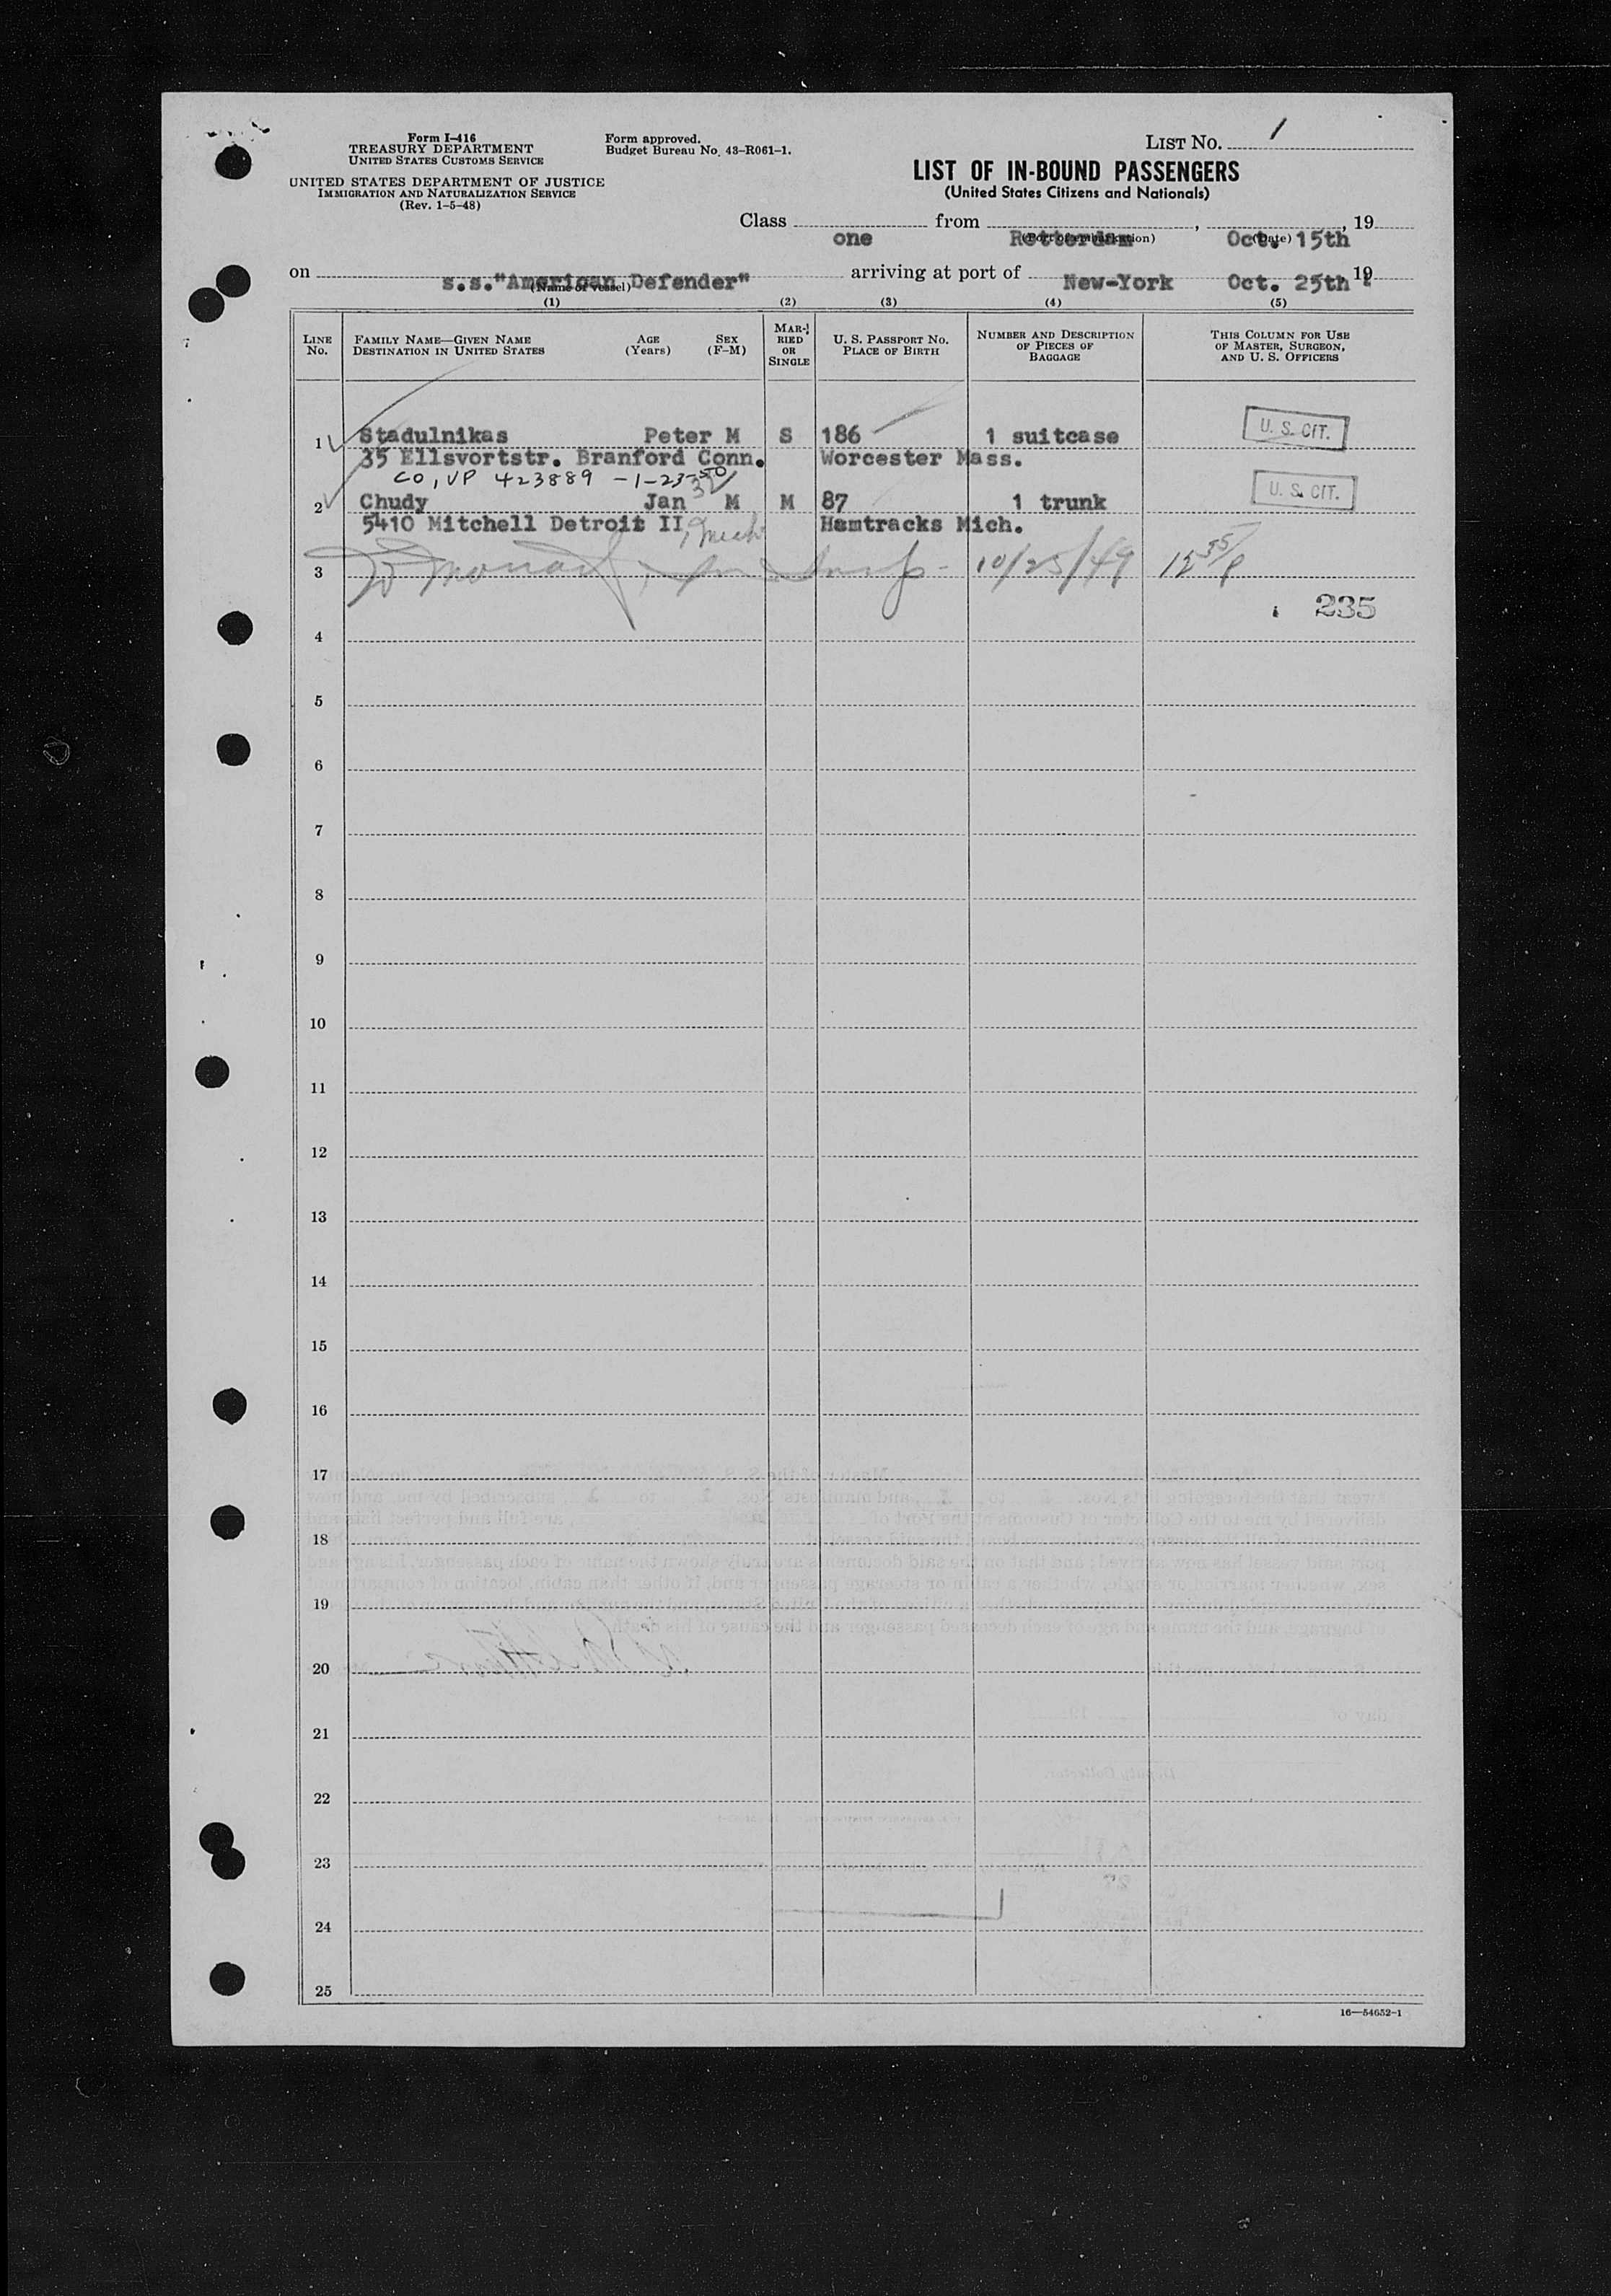 Form I-416
TREASURY DEPARTMENT
UNITED STATES CUSTOMS SERVICE
UNITED STATES DEPARTMENT OF JUSTICE
IMMIGRATION AND NATURALIZATION SERVICE
(Rev. 1-5-48)
Form approved.
Budget Bureau No. 43-R061-1.
LIST No. 1
LIST OF IN-BOUND PASSENGERS
(United States Citizens and Nationals)
Class one from Rotterdam, Oct. 15th, 19
(Port of embarkation) (Date)
on s.s."American Defender" arriving at port of New-York Oct. 25th 19
(Name of vessel)
(1) (2) (3) (4) (5)
LINE No. FAMILY NAME—GIVEN NAME DESTINATION IN UNITED STATES AGE (Years) SEX (F-M) MARRIED OR SINGLE U. S. PASSPORT No. PLACE OF BIRTH NUMBER AND DESCRIPTION OF PIECES OF BAGGAGE THIS COLUMN FOR USE OF MASTER, SURGEON, AND U. S. OFFICERS
1 Stadulnikas Peter M S 186 1 suitcase U. S. CIT.
35 Ellsvortstr. Branford Conn. Worcester Mass.
CO, VP 423889 -1-23-50
2 Chudy Jan 32 M M 87 1 trunk U. S. CIT.
5410 Mitchell Detroit II, Mich. Hamtracks Mich.
3 10/25/49 12 35/P
235
4
5
6
7
8
9
10
11
12
13
14
15
16
17
18
19
20
21
22
23
24
25
16—54652-1